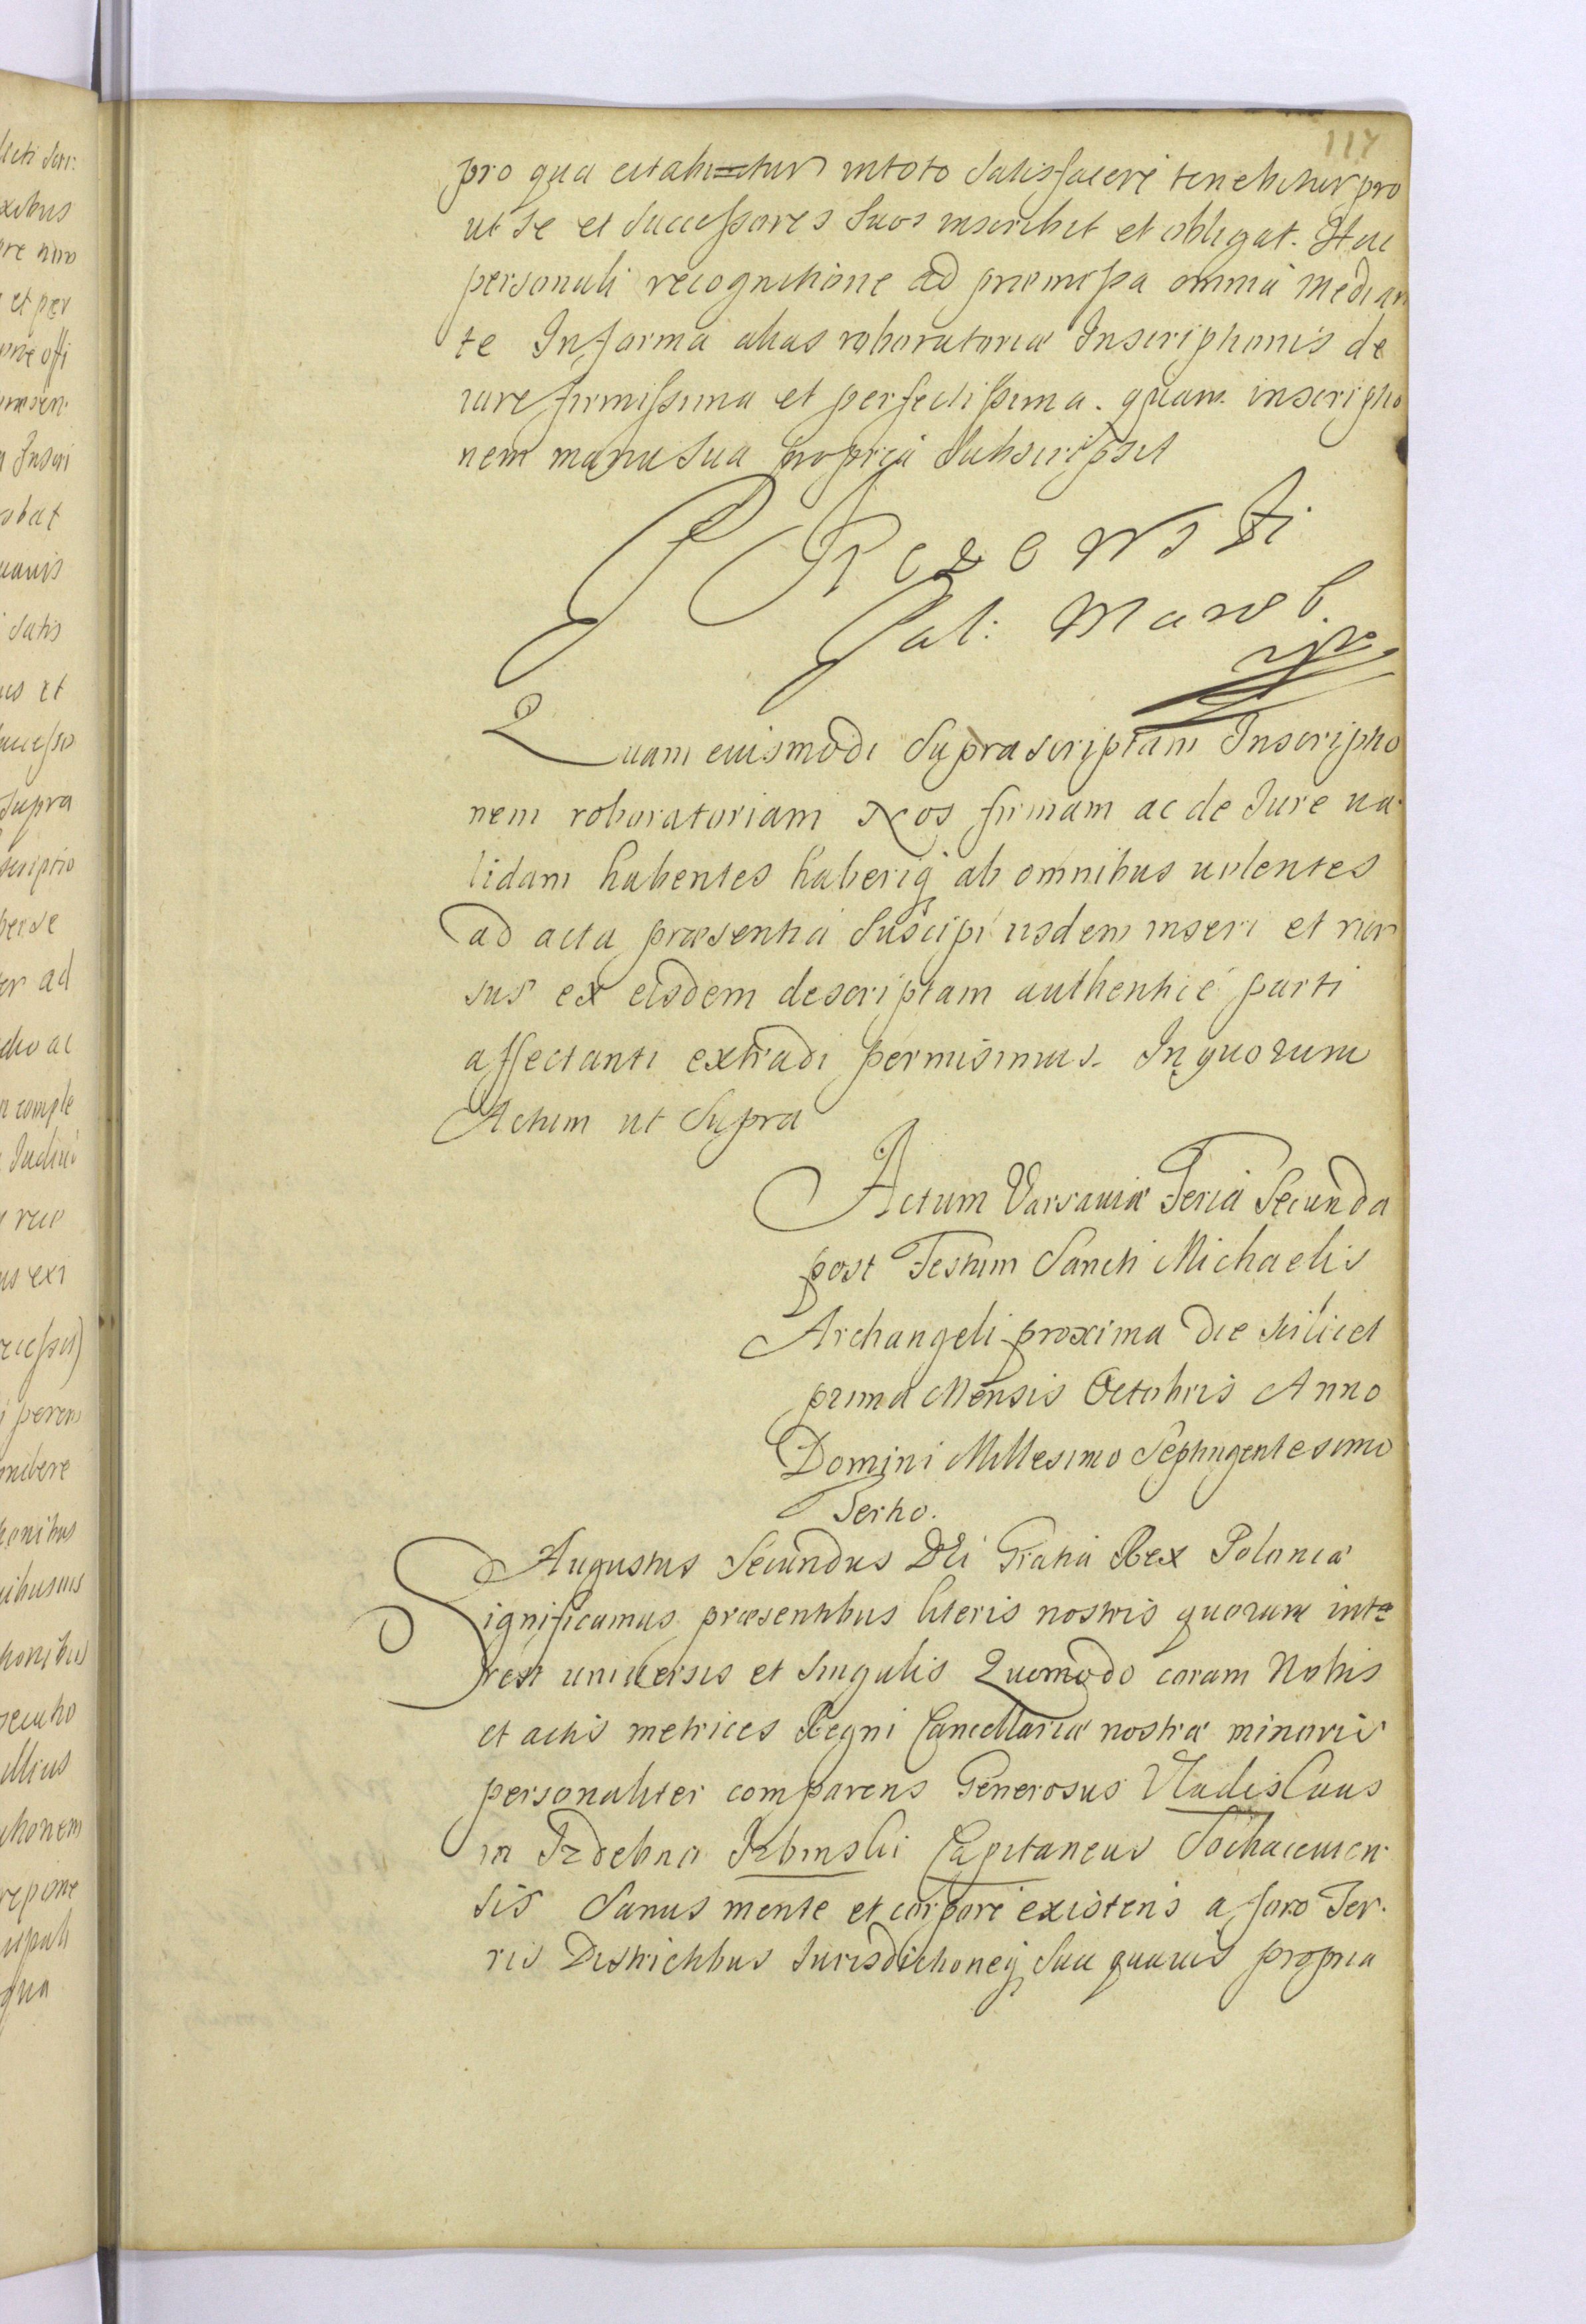 117
pro qua citabitur intoto satisfacere tenebitur pro
ut se et successores suos inscribit et obligat. Hac
personali recognitione ad præmissa omnia median
te In forma alias roboratoriæ Inscriptionis de
iure firmissima et perfectissima. quam inscriptio
nem manu sua propria subscripsit
Rzewski
Pal: Mareb.
Quam eiusmodi Suprascriptam Inscriptio
nem roboratoriam Nos firmam ac de Iure va
lidam habentes haberiq ab omnibus volentes
ad acta præsentia Suscipi iisdem inseri et rur
sus ex eisdem descriptam authenticè parti
affectanti extradi permisimus. In quorum
Actum ut Supra
Actum Varsaviæ Feria Secunda
post Festum Sancti Michaelis
Archangeli proxima die scilicet
prima Mensis Octobris Anno
Domini Millesimo Septingentesimo
Tertio.
Augustus Secundus Dei Gratia Rex Poloniæ
Significamus præsentibus literis nostris quorum inte
rest universis et singulis Quomodo coram Nobis
et actis metrices Regni Cancellariæ nostræ minoris
personaliter comparens Generosus Vladislaus
in Izdebna Izbinski Capitaneus Sochacievien
sis Sanus mente et corpore existens a foro Ter
ris Districtibus Iurisdictioneq sua quavis propria